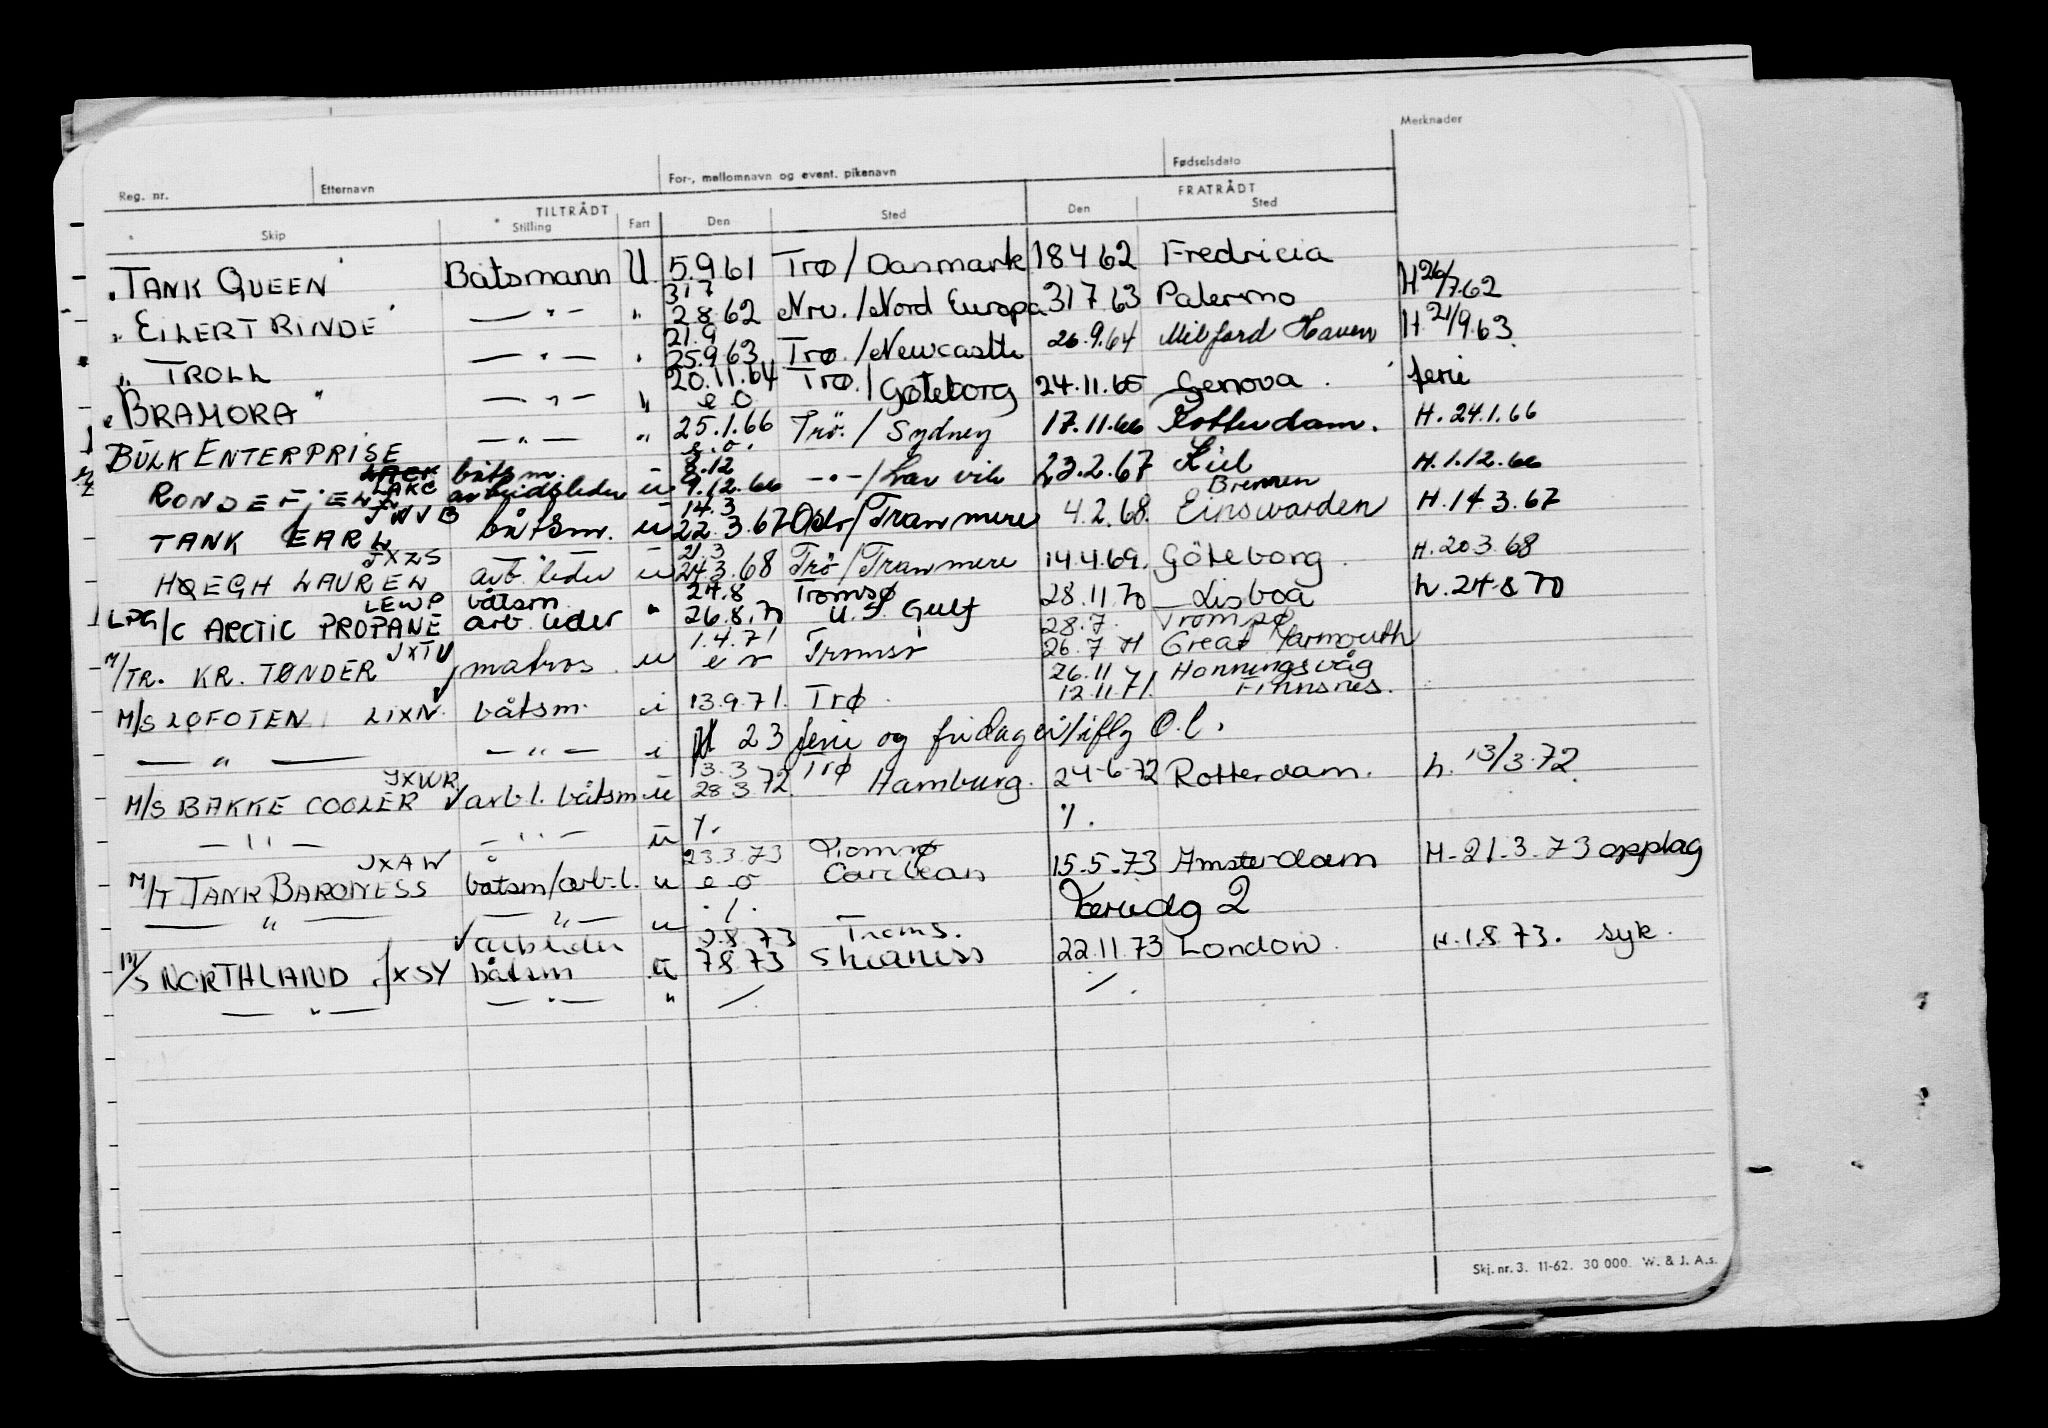 Merknader
Reg. nr. Etternavn For-, mellomnavn og event. pikenavn Fødselsdato
TILTRÅDT FRATRÅDT
Skip Stilling Fart Den Sted Den Sted
"TANK QUEEN" Båtsmann U. 5.9 61 Trø/Danmark 18 4 62 Fredricia
31 7
" EILERT RINDE" — " — " 2.8.62 Nrv./Nord Europa 31 7 63 Palermo H 26/7.62
21.9
" TROLL — " — " 25.9 63 Trø./Newcastle 26.9.64 Milford Haven H. 21/9.63
"BRAMORA" — " — " 20.11.64 Trø./Göteborg 24.11.65 Genova. ferie
e o
BULK ENTERPRISE — " — " 25.1.66 Trö./Sydney 17.11.66 Rotterdam. H. 24.1.66
e.o.
LAKC båtsm. 8.12
RONDEFJELL arbeidsleder u 9.12.66 — " — /Larvik 23.2.67 Kiel H. 1.12.66
JWVB 14.3 Bremen
TANK EARL båtsm. u 22.3.67 Oslo/Tranmere 4.2.68. Einswarden H. 14 3.67
JXZS 21.3
HØEGH LAUREL arb. leder u 24 3.68 Trö/Tranmere 14.4.69. Göteborg. H. 20 3.68
LEWP båtsm 24.8 Tromsø
LPG/C ARCTIC PROPANE arb. leder " 26.8.70 U.S. Gulf 28.11 70 Lisboa h. 24-8 70
JXTU 1.4.71 28.7. Tromsø
M/TR. KR. TØNDER matros u e o Tromsø 26.7 71 Great Yarmouth
26.11 Honningsvåg
M/S LOFOTEN LIXN båtsm. i 13.9.71. Trø. 12.11.71. Finnsnes.
— " — — " — i 23 ferie og fridager i/iflg O.l.
JXWR 13.3 Trø
M/S BAKKE COOLER arb l. båtsm u 28 3 72. Hamburg. 24-6-72 Rotterdam. h. 13/3.72.
— " — — " — u ./. ./.
JXAW 23.3.73 Tromsø
M/T TANK BARONESS båtsm/arb.l. u e o Caribean 15.5.73 Amsterdam H. 21.3.73 opplag
— " — — " — u ./.
arbleder .8.73 Troms.
M/S NORTHLAND JXSY båtsm u 7 8 73 22.11.73 London. H. 1.8.73. syk.
— " — — " — " ./. ./.
Skj. nr. 3. 11-62. 30 000. W. & J. A.s.